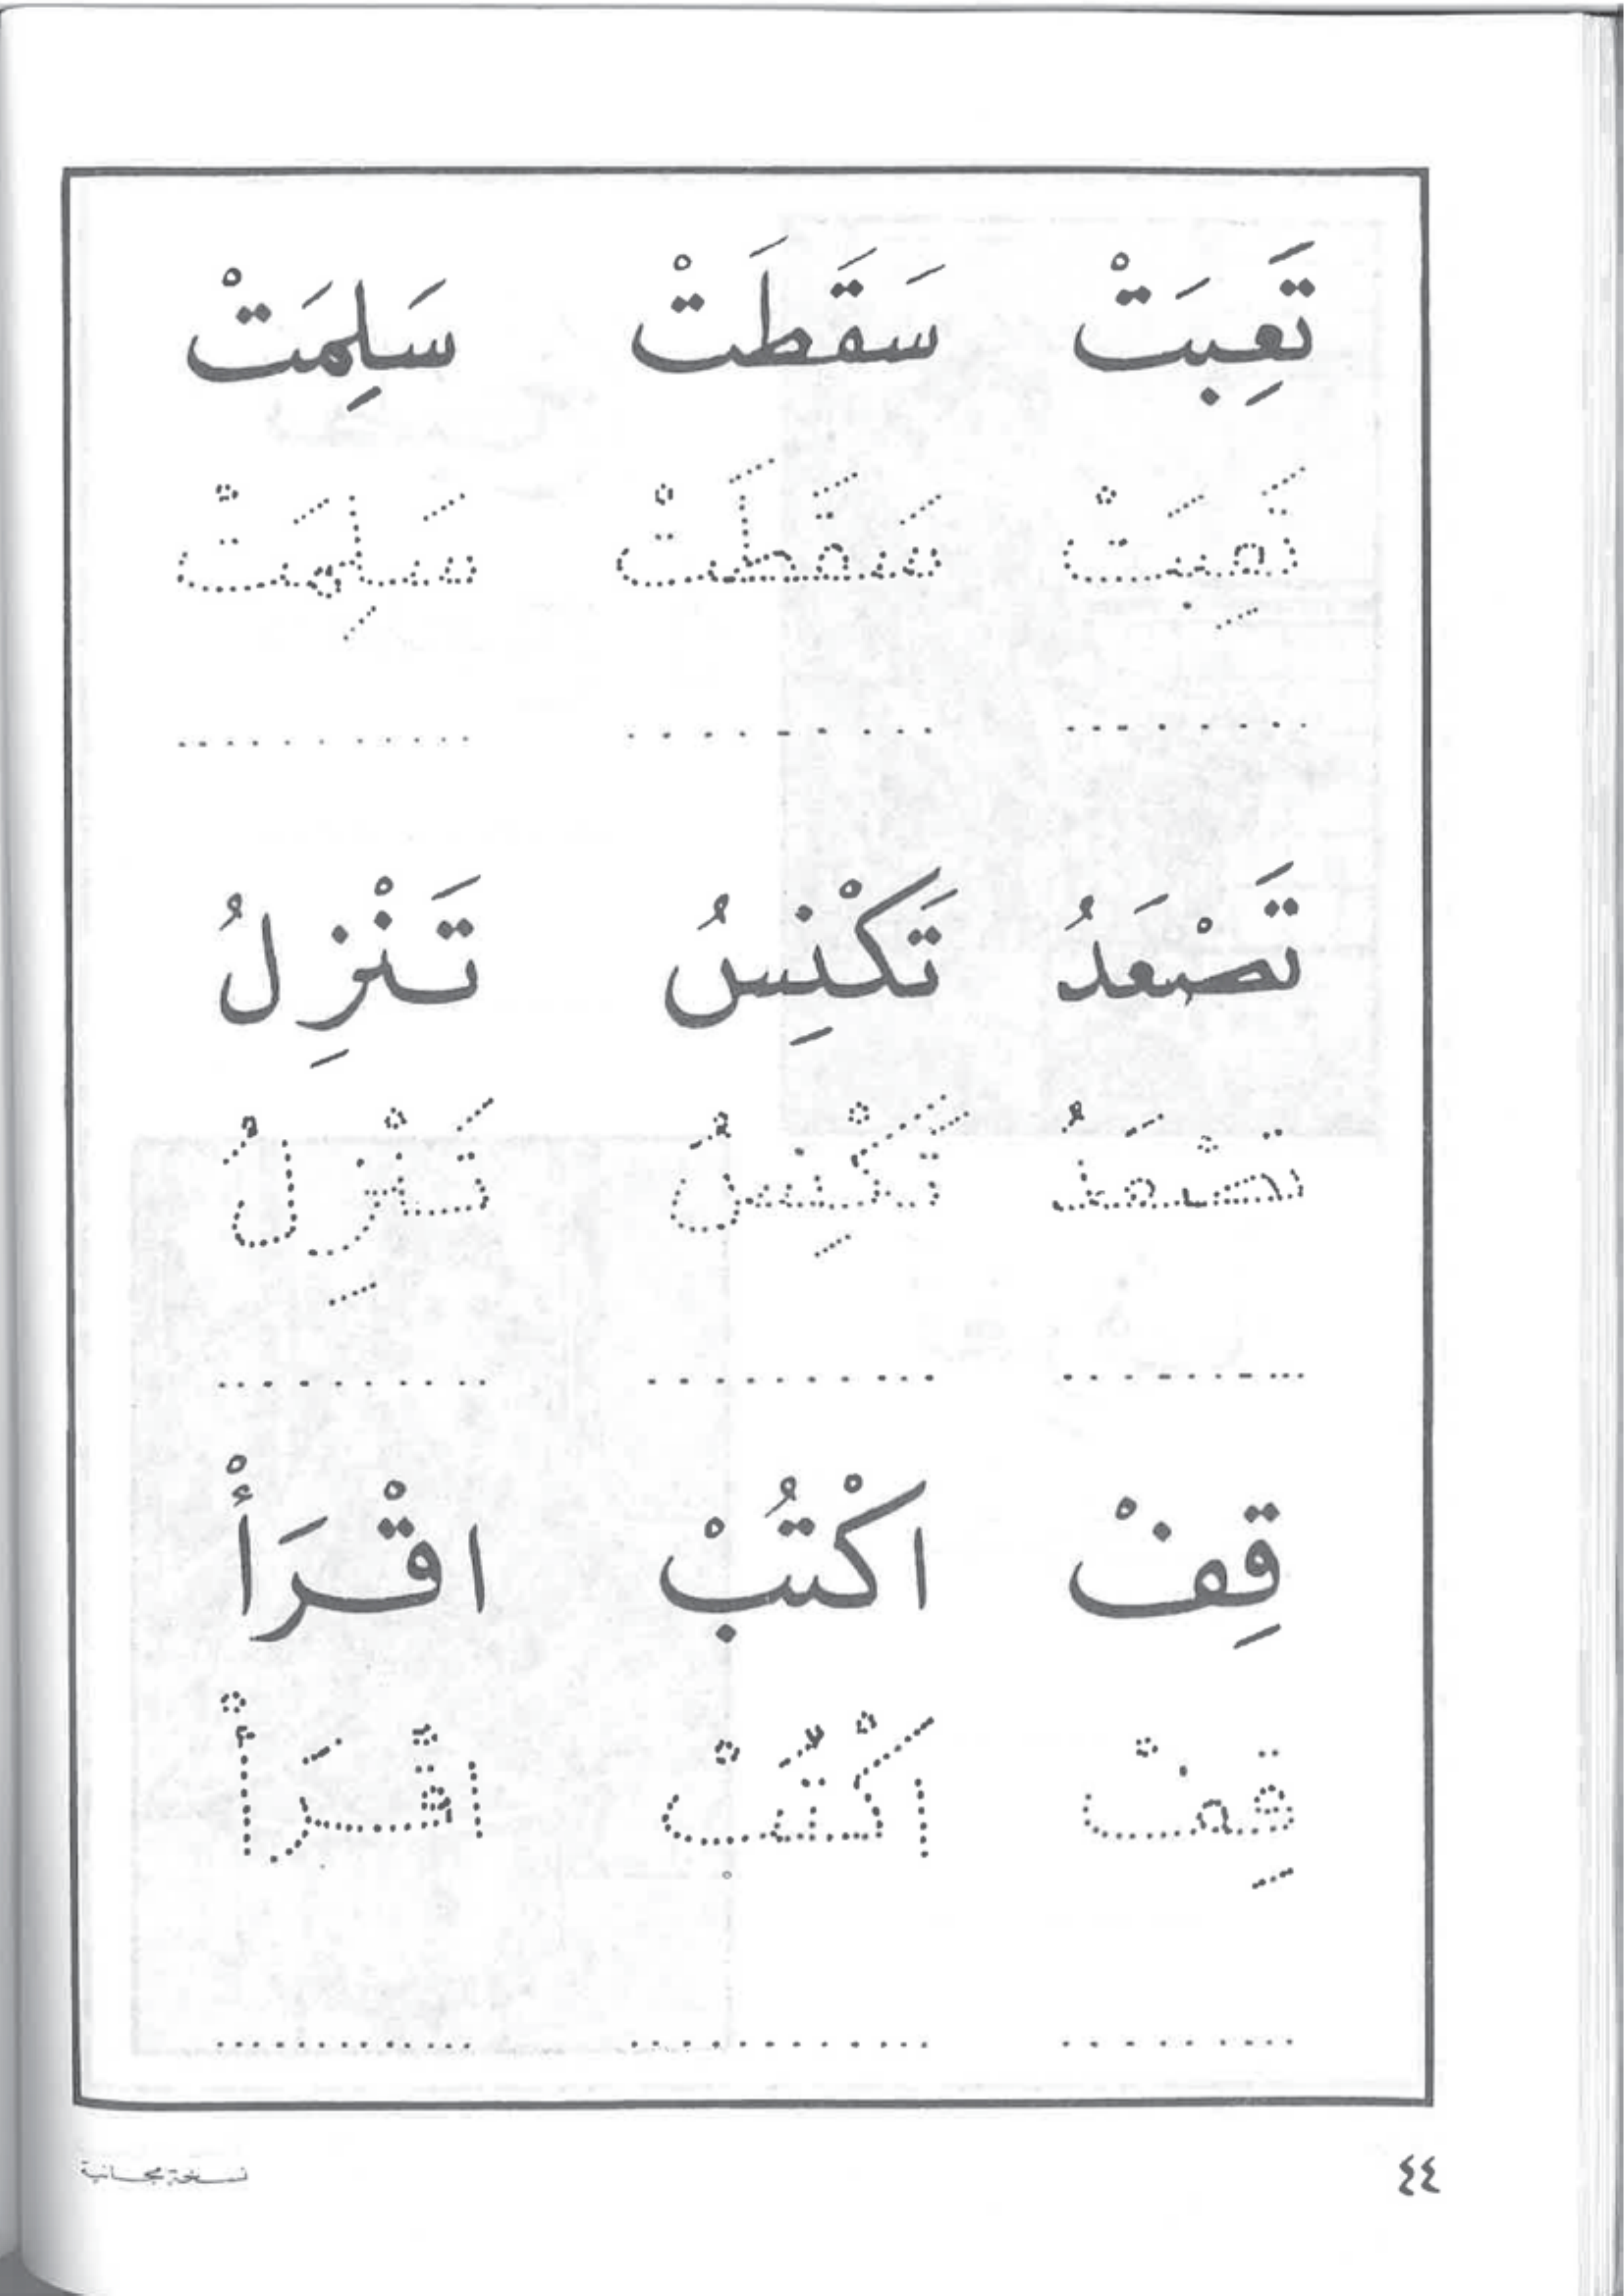 تَعِبَتْ سَقَطَتْ سَلِمَتْ
تَعِبَتْ سَقَطَتْ سَلِمَتْ
تَصْعَدُ تَكْنِسُ تَنْزِلُ
تَصْعَدُ تَكْنِسُ تَنْزِلُ
قِفْ اكْتُبْ اقْرَأْ
قِفْ اكْتُبْ اقْرَأْ
نسخة مجانية ٤٤